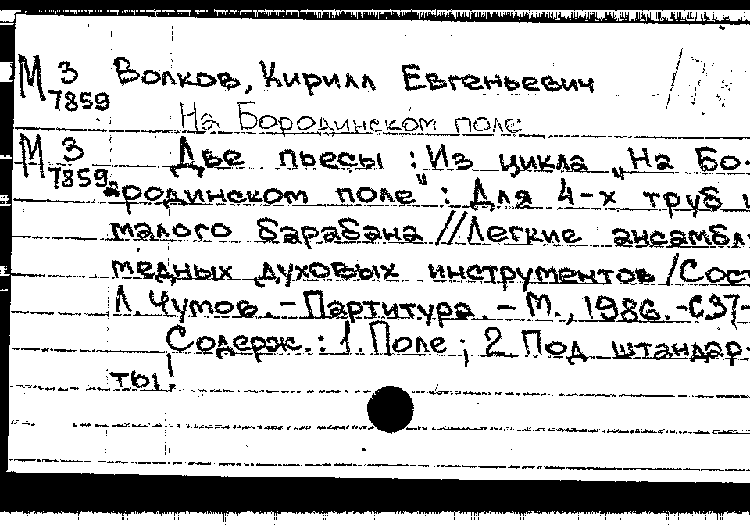 М 3 Волков, Кирилл Евгеньевич
7859
На Бородинском поле
М 3 Две пьесы : Из цикла „На Бо-
7859 родинском поле" : Для 4-х труб и
малого барабана // Легкие ансамбли
медных духовых инструментов / Сост
Л. Чумов. – Партитура. – М., 1986. - С37-
Содерж.: 1. Поле ; 2. Под штандар-
ты!